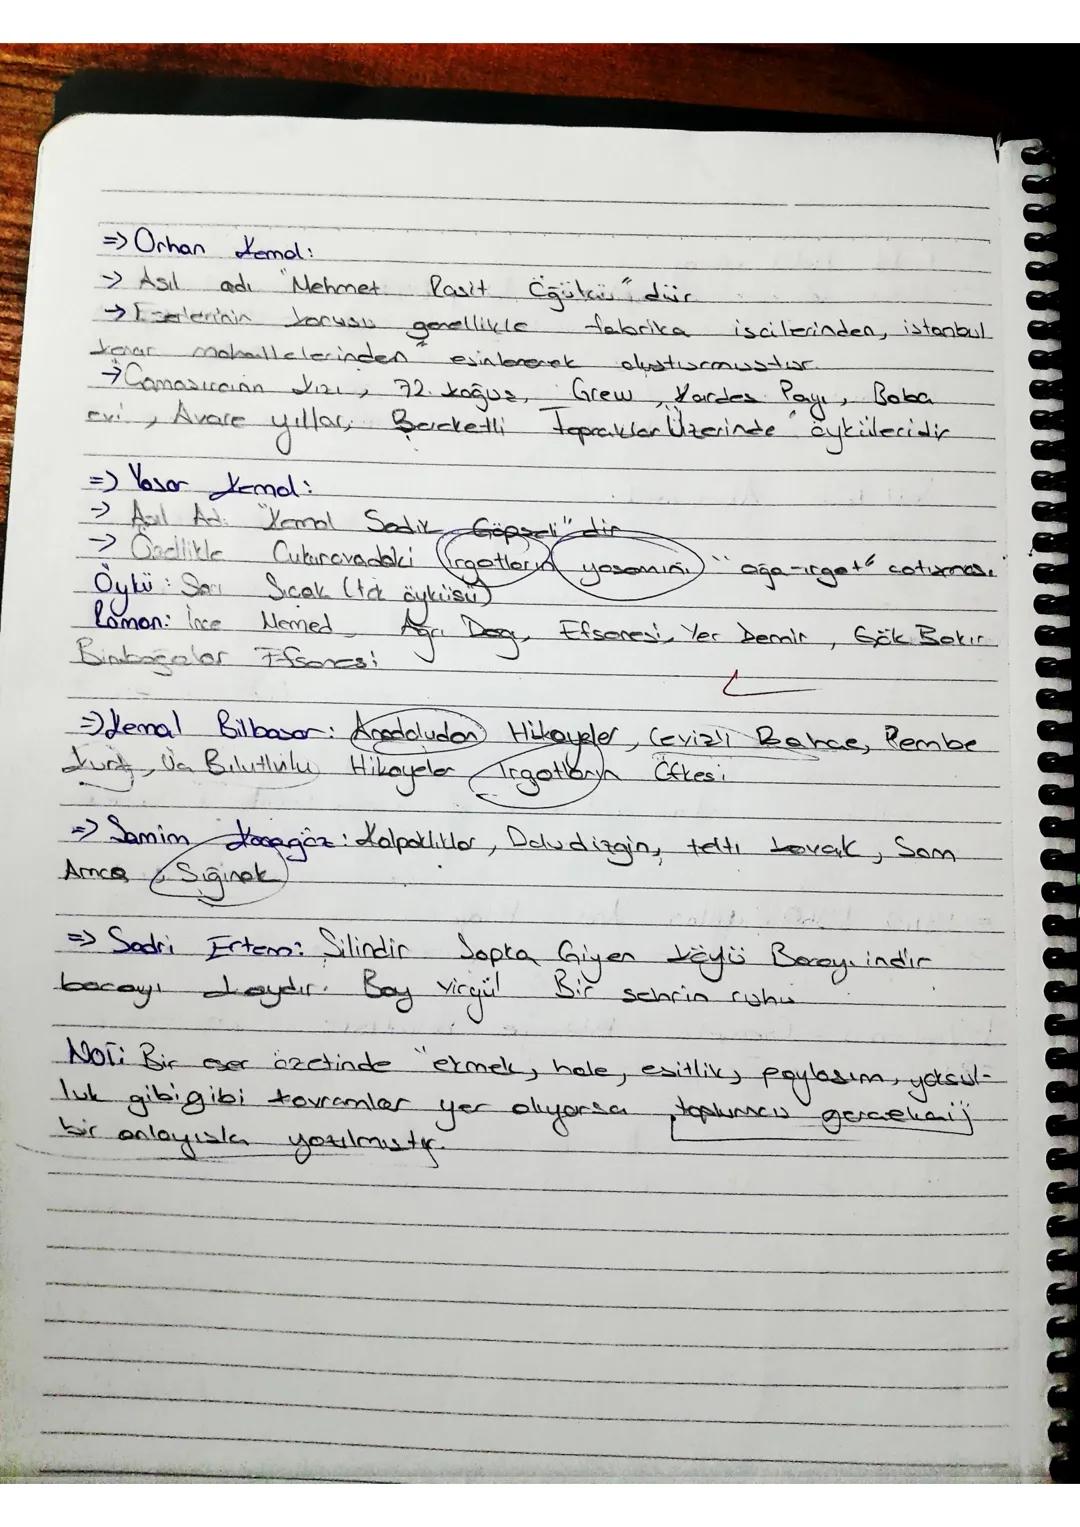 => Orhan Kemal:
-> Asıl adı "Mehmet Raşit Öğütçü" dür
-> Eserlerinin konusu genellikle fabrika iscilerinden, istanbul
kenar mahallelerinden esinlenerek oluşturmuştur.
-> Camasırcının kızı, 72. koğuş, Grew, Kardes Payı, Baba
evi, Avare yıllar, Bereketli Topraklar Üzerinde öyküleridir
=> Yasar Kemal:
-> Asıl Adı "Kemal Sadık Göpceli" dir
-> Özellikle Cukurovadaki ırgatların yasamını "ağa-ırgat" catısması
Öykü: Sarı Sıcak (tek öyküsü)
Roman: İnce Memed Ağrı Dagı Efsanesi, Yer Demir, Gök Bakır
Binboğalar Efsanesi
=> Kemal Bilbasar: Anadoludan Hikayeler, Cevizli Bahce, Pembe
kurt, Üc Bulutlulu Hikayeler Irgatların Öfkesi
=> Samim Kocagöz: Kalpaklılar, Doludizgin, telli kavak, Sam
Amca, Sığınak
=> Sadri Ertem: Silindir Sapka Giyen köylü Bacayı indir
bacayı kaydır. Bay virgül Bir sehrin ruhu
NOT: Bir eser özetinde "ekmek, hale, esitlik, paylasım, yoksul-
luk gibi gibi kavramlar yer alıyorsa toplumcu gercekci
bir anlayısla yazılmıstır.